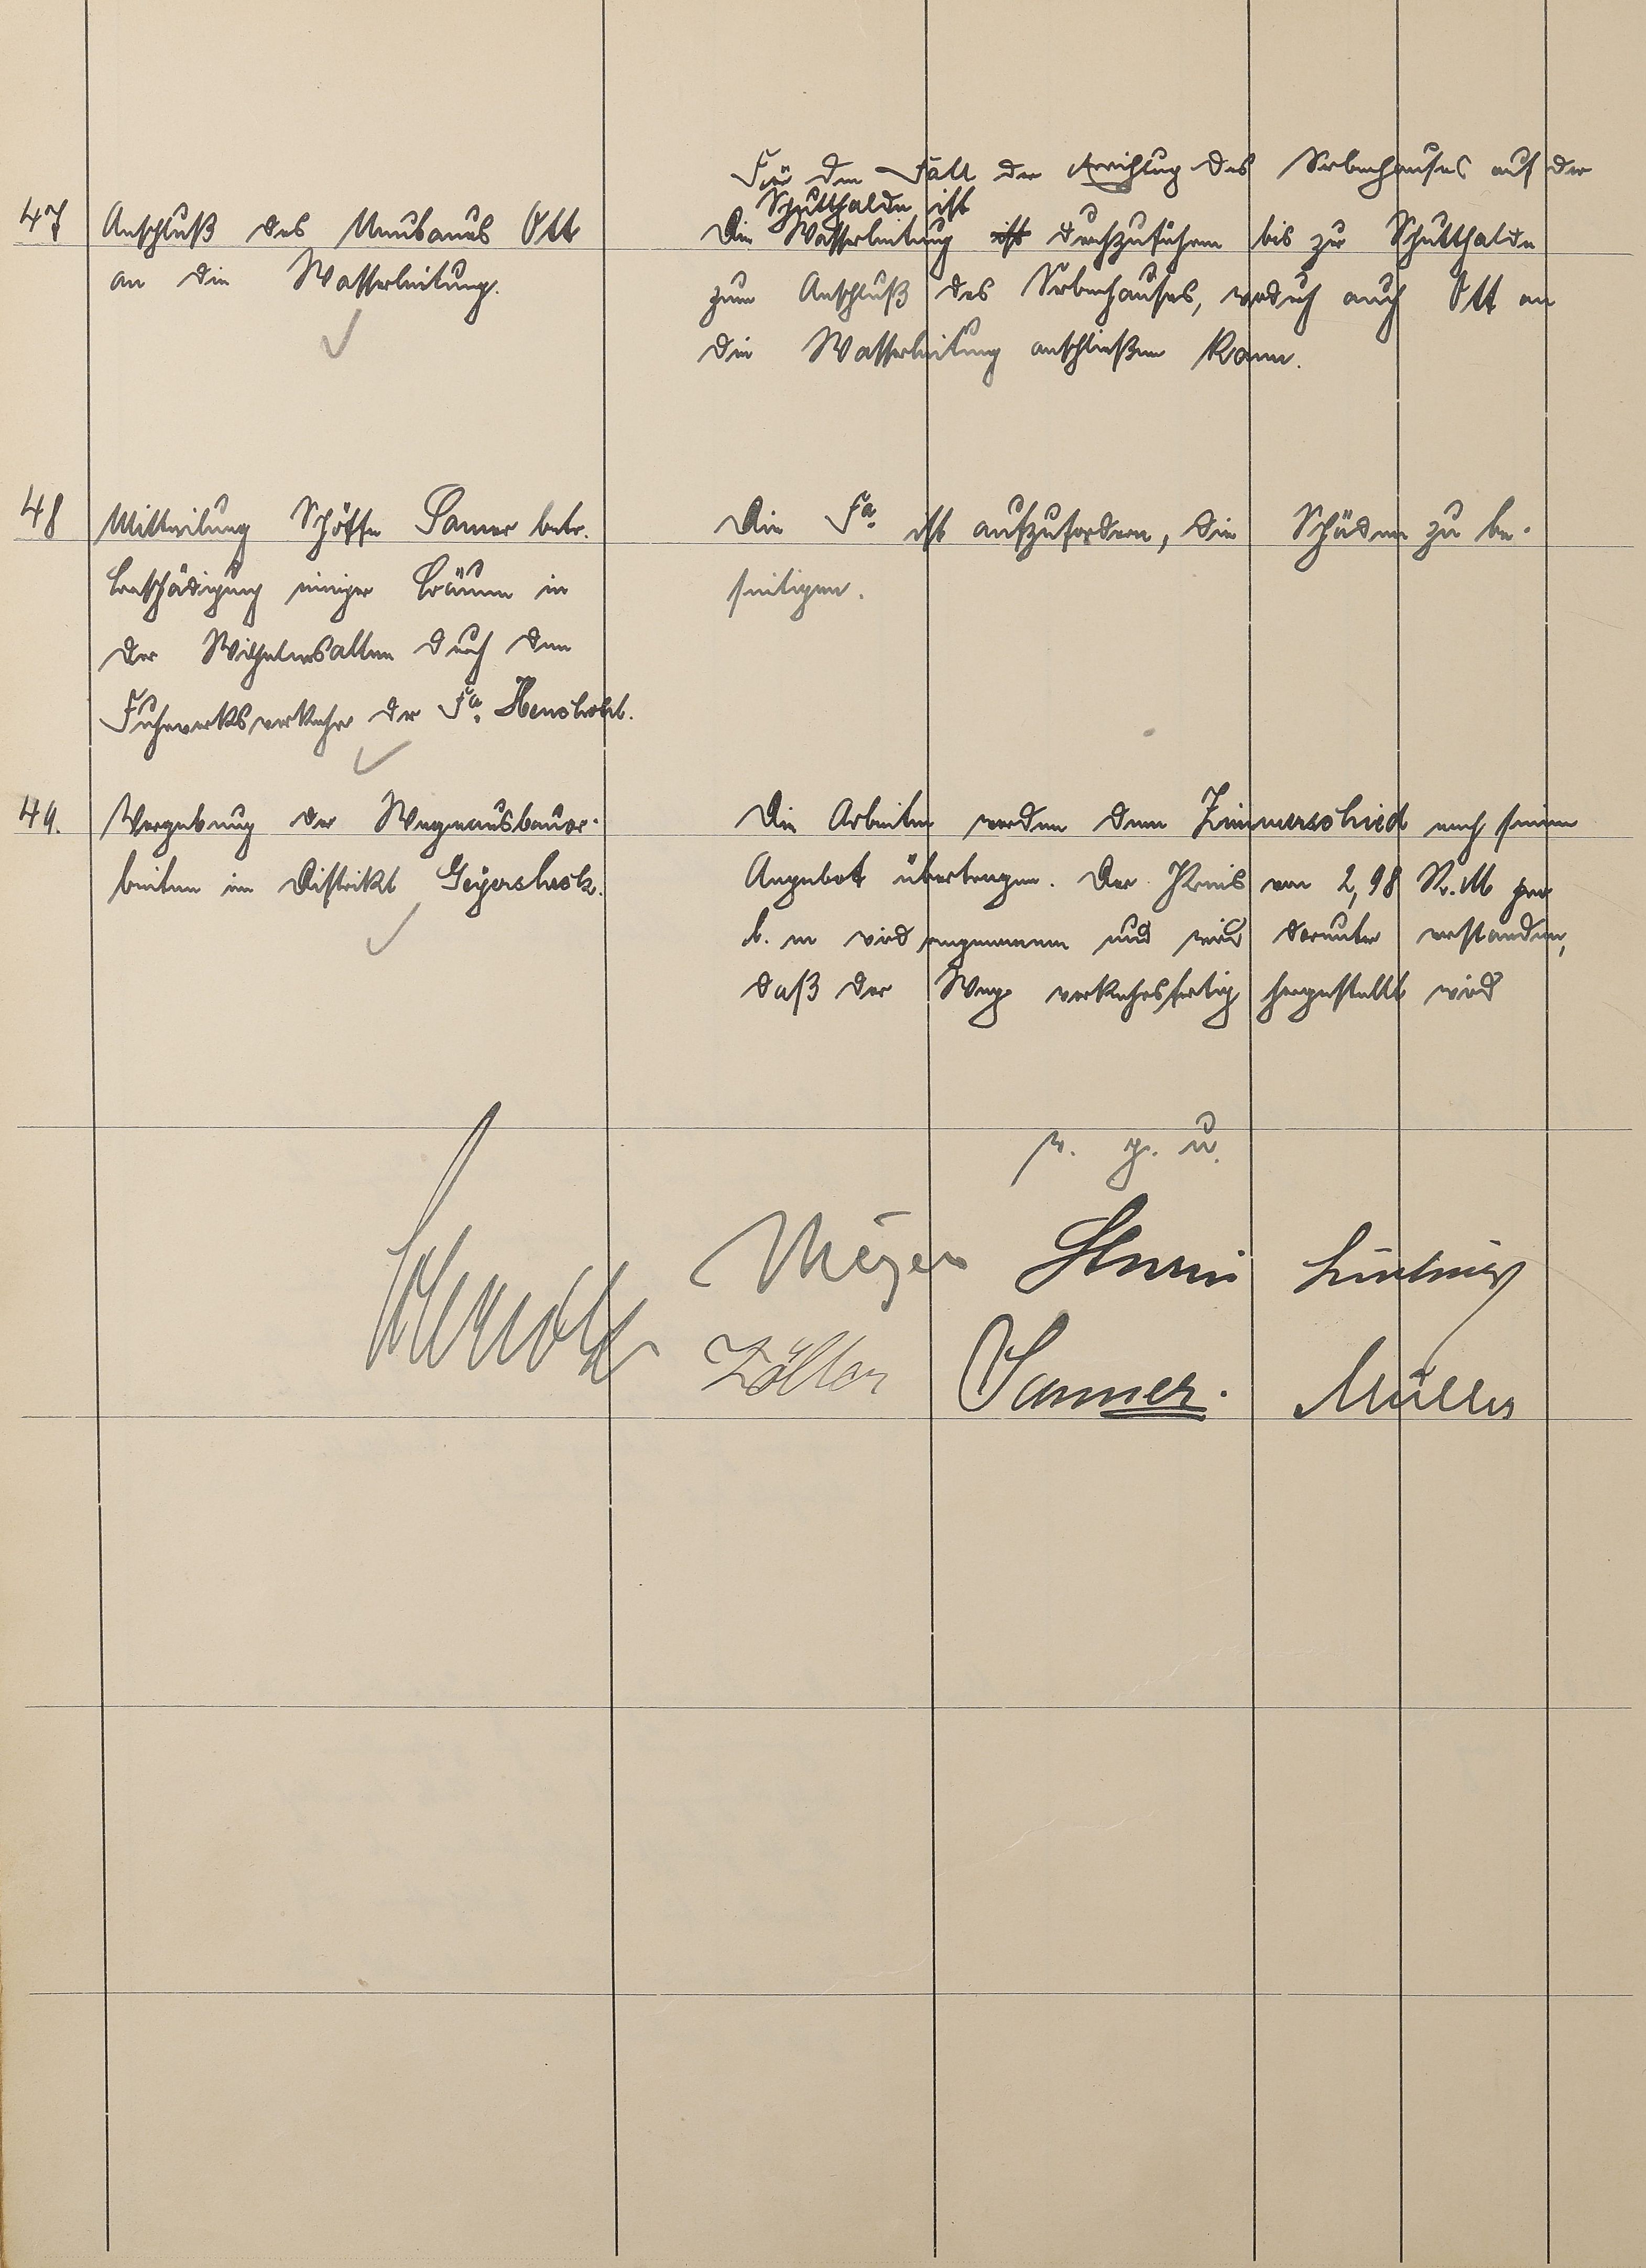 Für den Fall der Errichtug des Siebenhauses auf der
Schutthalde ist
47 Anschluß des Neubaues Ott
an die Wasserleitung.
Die Wasserleitung ist durchzuführen bis zur Schutthalde
zum Anschluß des Siebenhauses, woduch auch Ott an
die Wasserleitung anschließen kann.
48 Mitteilung Schöffe Samer betr.
Beschädigung einiger Bäume in
der Wilhelmsallee duch den
Fuhrwerksverkehr der Fa.
Die Fa. ist aufzufordern, die Schäden zu be-
seitigen.
49. Vergebung der Wegeausbauar-
beiten im Distrikt Geyersheck.
Die Arbeiten werden dem Zimmerschied nach seinem
Angebot übertragen. Der Preis von 2,98 R.M per
l. m wird angenommen und wird darunter verstanden,
daß der Weg verkehrsfertig hergestellt wird
v. g. u.
Meyer
Zöller Samer. Müller